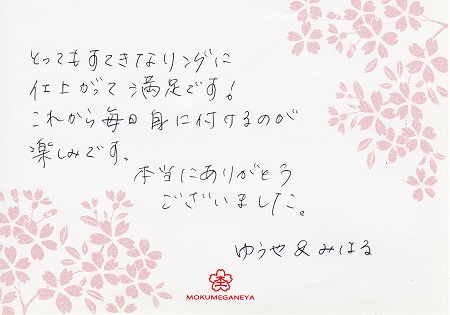 とってもすてきなリングに
仕上がって満足です!
これから毎日身に付けるのが
楽しみです。
本当にありがとう
ございました。
ゆうや&みはる
MOKUMEGANEYA